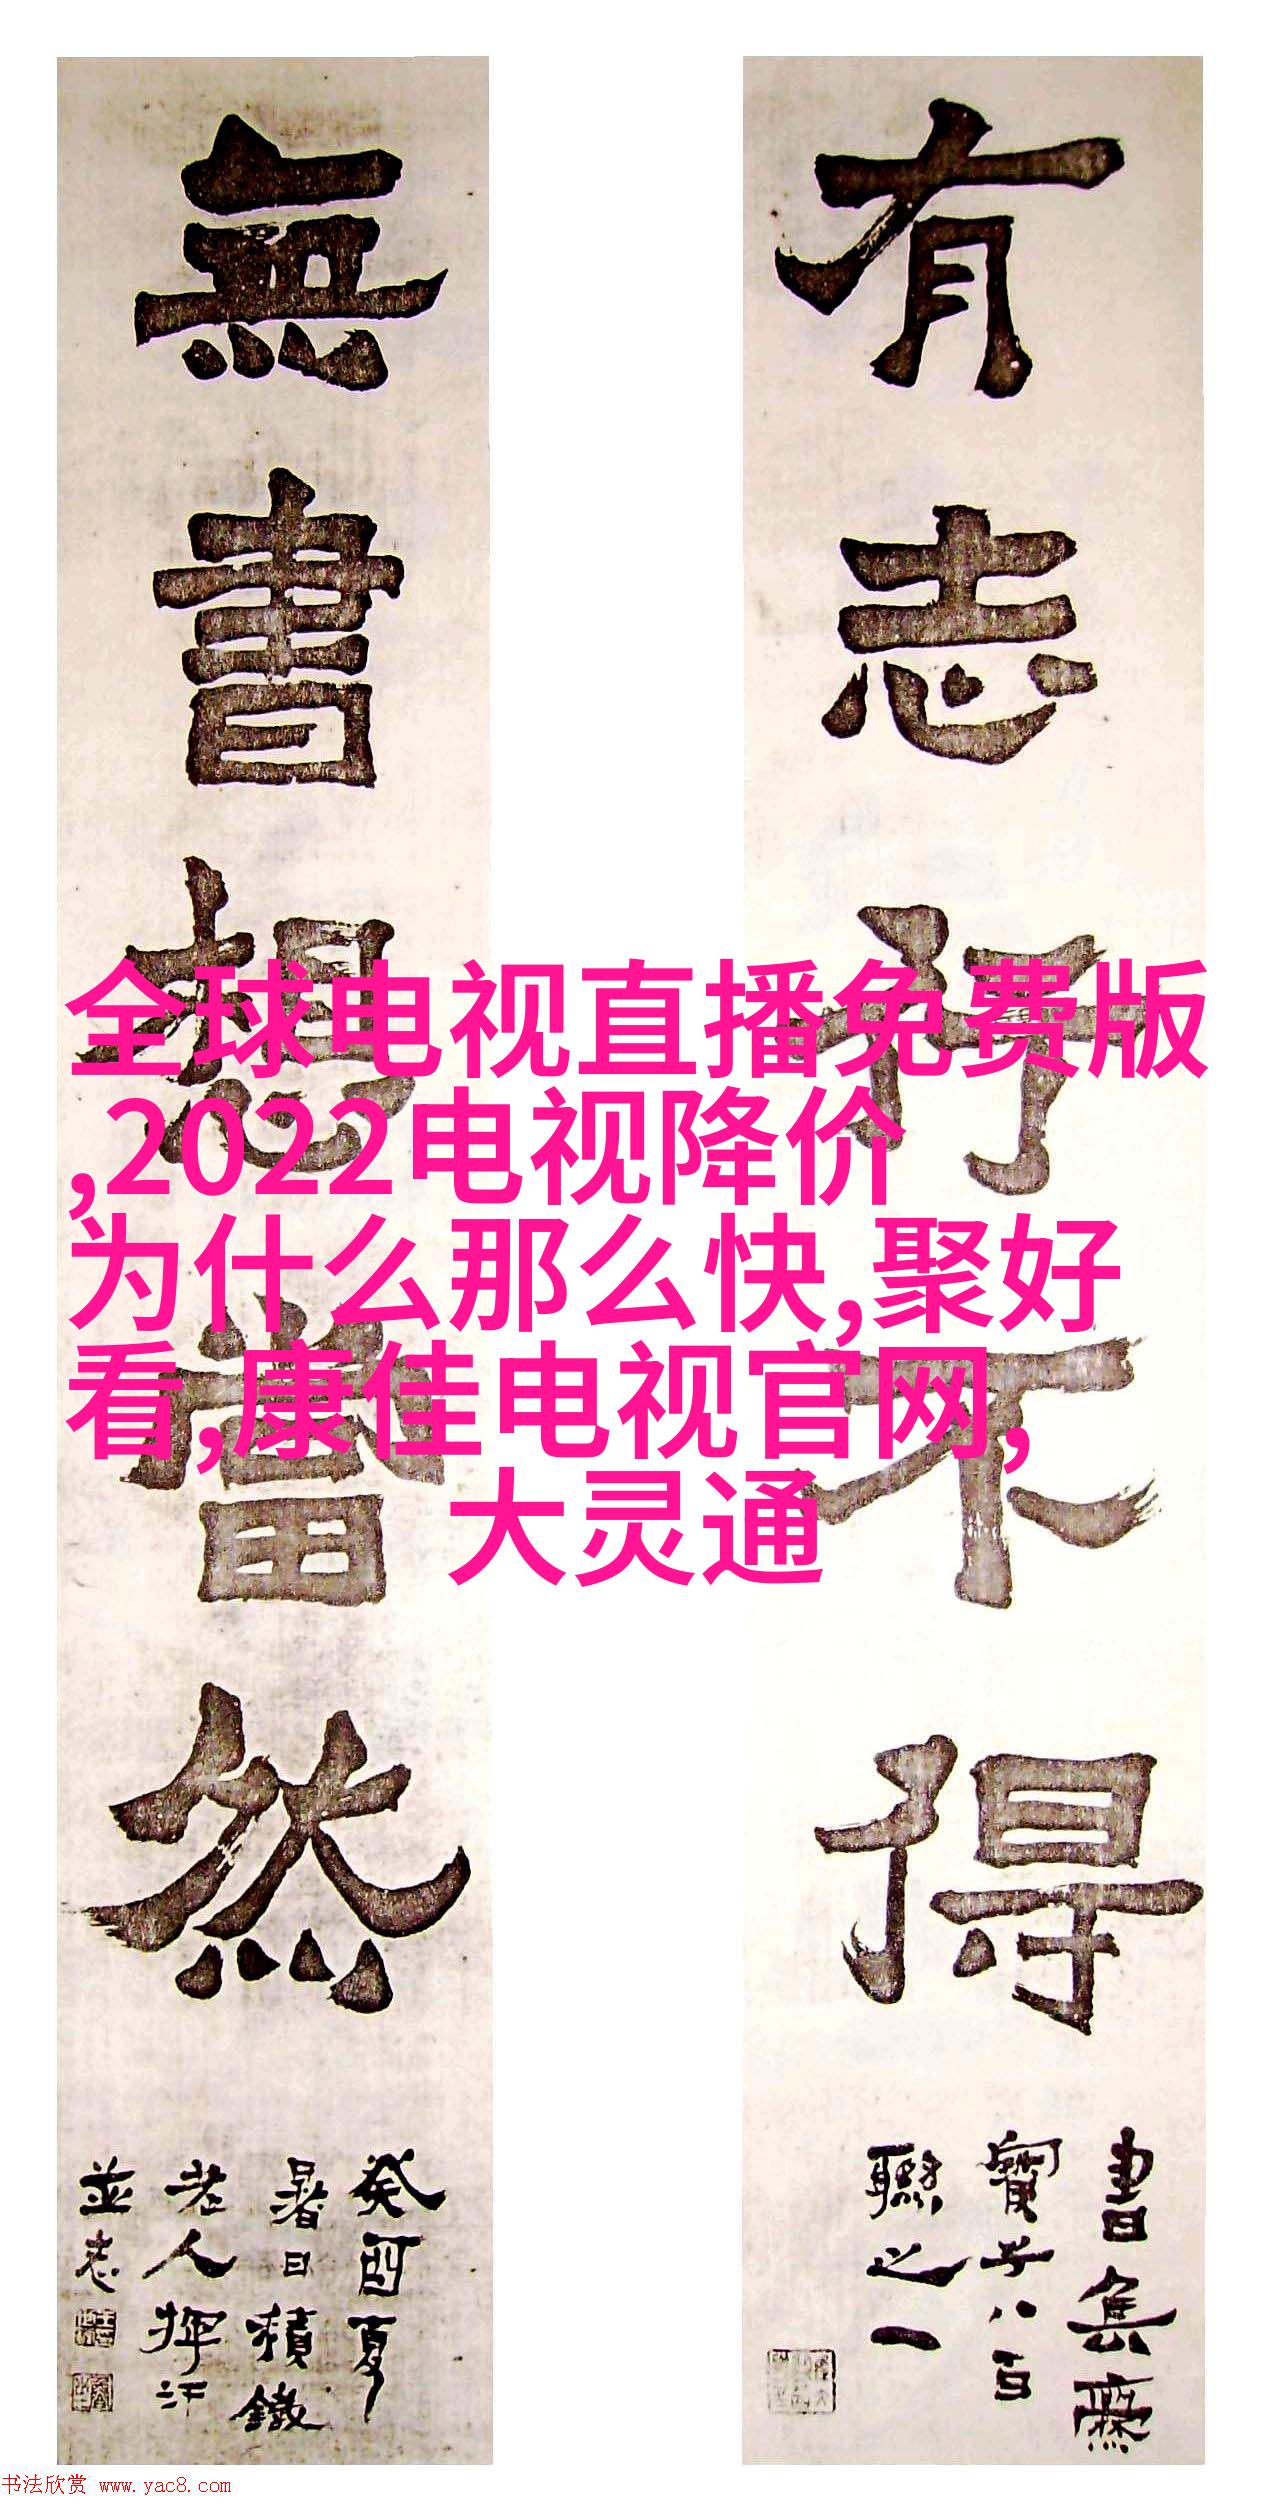 有志竹不得
書集廡
寶子八百
聯之一
無書想當然
癸酉夏
暑日積鐵
老人揮汗
並志
全球电视直播免费版
,2022电视降价
为什么那么快,聚好
看,康佳电视官网,
大灵通
书法欣赏 www.yac8.com